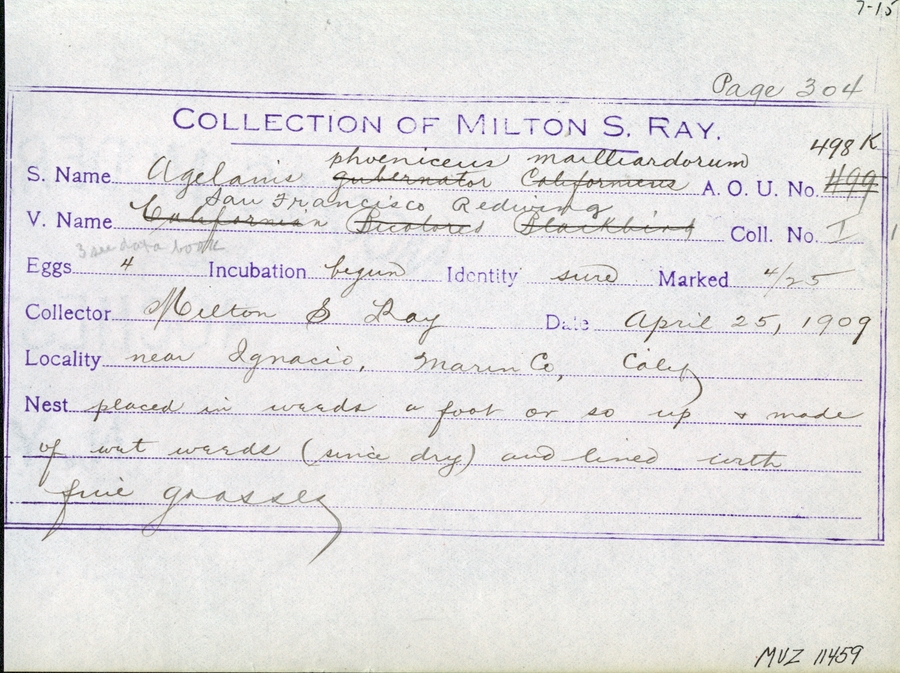 7-15
Page 304
COLLECTION OF MILTON S. RAY.
phoeniceus mailliardorum 498 K
S. Name Agelaius gubernator Californicus A. O. U. No. 499
San Francisco Redwing
V. Name Californian Bicolored Blackbird Coll. No. I
3 see data book
Eggs 4 Incubation begun Identity sure Marked 4/25
Collector Milton S Ray Date April 25, 1909
Locality near Ignacio, Marin Co, Calif
Nest placed in weeds a foot or so up & made
of wet weeds (since dry) and lined with
fine grasses
MVZ 11459